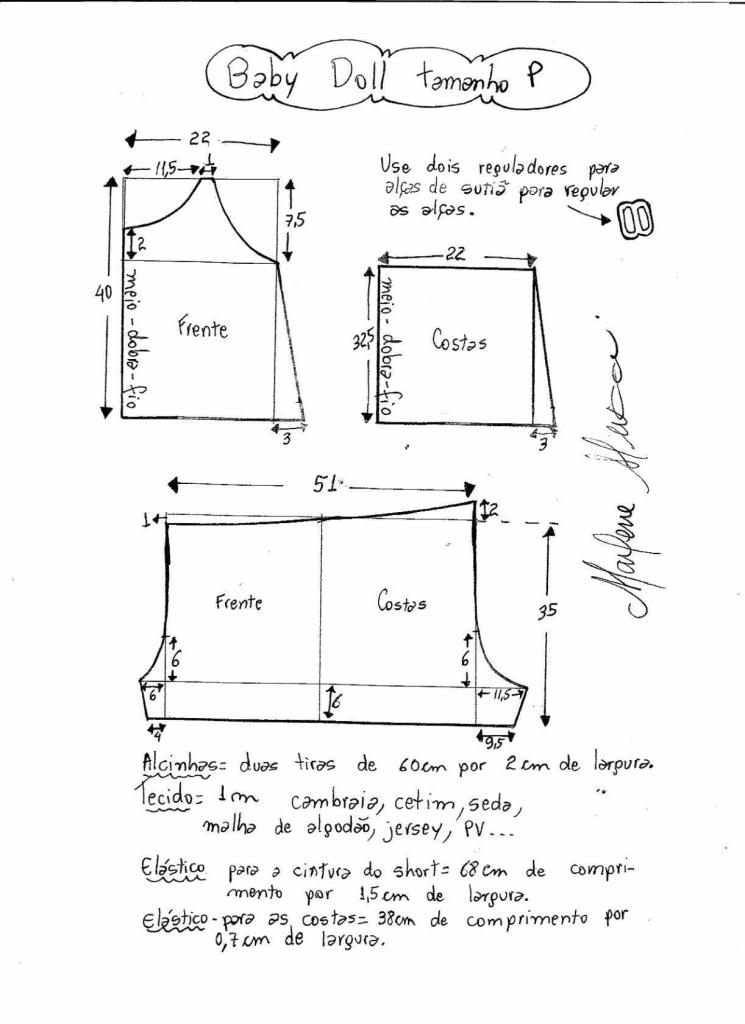 Baby Doll tamanho P
22
11,5
1
7,5
2
40
meio-dobra-fio
Frente
3
Use dois reguladores para
alças de sutiã para regular
as alças.
22
32,5
meio-dobra-fio
Costas
3
51
1
2
Frente
Costas
35
6
6
6
11,5
6
4
9,5
Marlene
Alcinhas= duas tiras de 60cm por 2cm de largura.
Tecido= 1m cambraia, cetim, seda,
malha de algodão, jersey, PV...
Elástico para a cintura do short= 68cm de compri-
mento por 1,5cm de largura.
Elástico-para as costas= 38cm de comprimento por
0,7cm de largura.